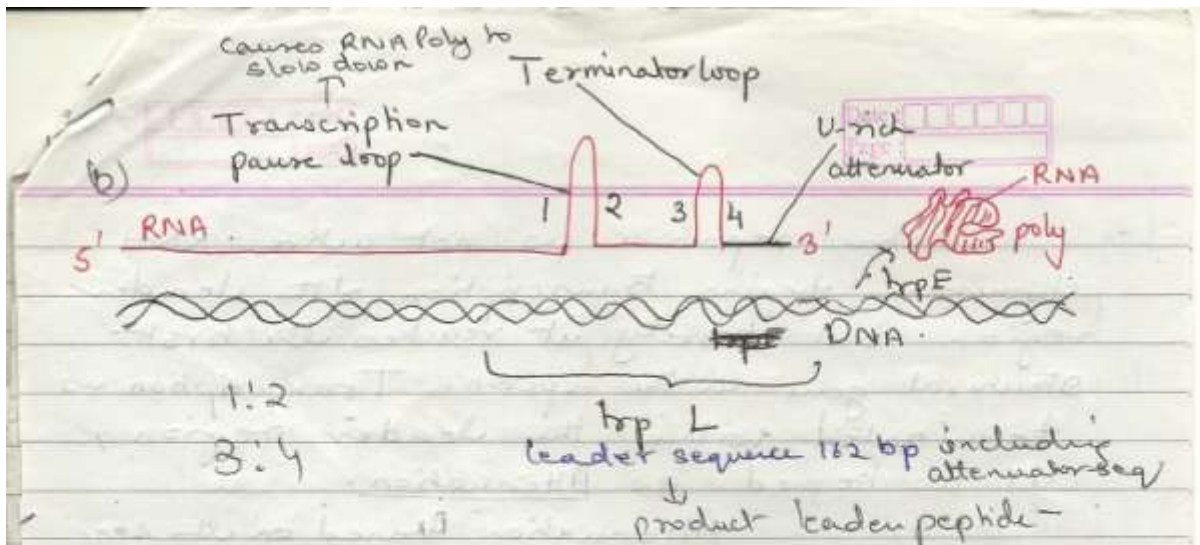 causes RNA Poly to
slow down
Terminator loop
Transcription
pause loop
U-rich
attenuator
Date:
Page:
(b)
RNA
1 2 3 4
5' RNA 3'
poly
trpE
DNA
1:2
3:4
trp L
leader sequence 162 bp including
attenuator seq
product leader peptide